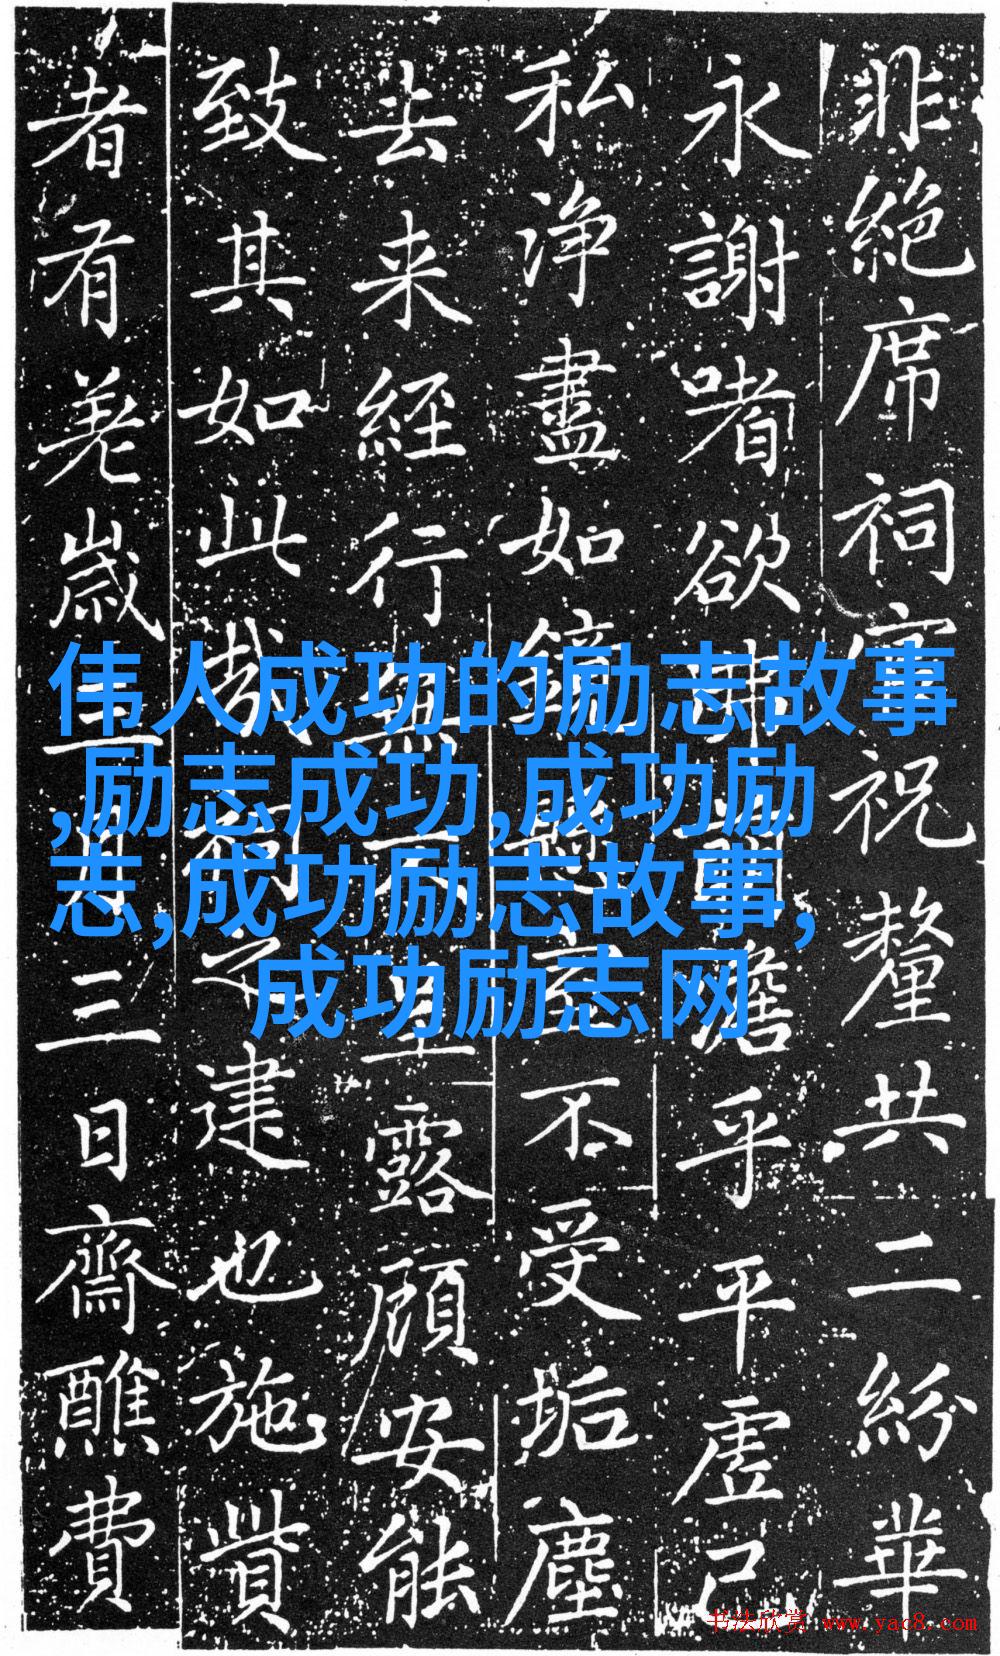 非絶席祠官祝釐共二紛華
永謝嗜欲乎平虛己
私浄盡如鏡懸不受垢塵
去来経行無露顧安能
致其如此哉建也施貲
者有差歲月三日齋醮費
伟人成功的励志故事
,励志成功,成功励
志,成功励志故事,
成功励志网
书法欣赏 www.yac8.com